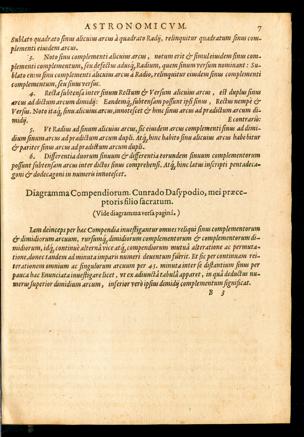 ASTRONOMICVM. 7
Sublato quadrato sinus alicuius arcus à quadrato Radij, relinquitur quadratum sinus com-
plementi eiusdem arcus.
3. Noto sinu complementi alicuius arcus, notum erit & simul eiusdem sinus com-
plementi complementum, seu defectus adusq́; Radium, quem sinum versum nominant: Su-
blato enim sinu complementi alicuius arcus à Radio, relinquitur eiusdem sinus complementi
complementum, seu sinus versus.
4. Recta subtensa inter sinum Rectum & Versum alicuius arcus, est duplus sinus
arcus ad dictum arcum dimidij: Eandemq́; subtensam possunt ipsi sinus, Rectus nempe &
Versus. Noto itaq́; sinu alicuius arcus, innotescet & hinc sinus arcus ad praedictum arcum di-
midij. E contrario:
5. Vt Radius ad sinum alicuius arcus, sic eiusdem arcus complementi sinus ad dimi-
dium sinum arcus ad praedictum arcum dupli. Atq́; hinc habito sinu alicuius arcus habebitur
& pariter sinus arcus ad praedictum arcum dupli.
6. Differentia duorum sinuum & differentia eorundem sinuum complementorum
possunt subtensam arcus inter dictos sinus comprehensi. Atq́; hinc latus inscripti pentadeca-
goni & dodecagoni in numeris innotescet.
Diagramma Compendiorum. Cunrado Dasypodio, mei praece-
ptoris filio sacratum.
(Vide diagramma versa pagina.)
Iam deinceps per haec Compendia inuestigantur omnes reliqui sinus complementorum
& dimidiorum arcuum, rursumq́; dimidiorum complementorum & complementorum di-
midiorum, idq́; continuè alterna vice atq́; compendiorum mutua alteratione ac permuta-
tione, donec tandem ad minuta imparis numeri deuentum fuerit. Et sic per continuam rei-
terationem omnium ac singulorum arcuum per 45. minuta inter se distantium sinus per
pauca haec Enunciata inuestigare licet, vt ex adiuncta tabula apparet, in qua deductus nu-
merus superior dimidium arcum, inferior verò ipsius dimidij complementum significat.
B 3